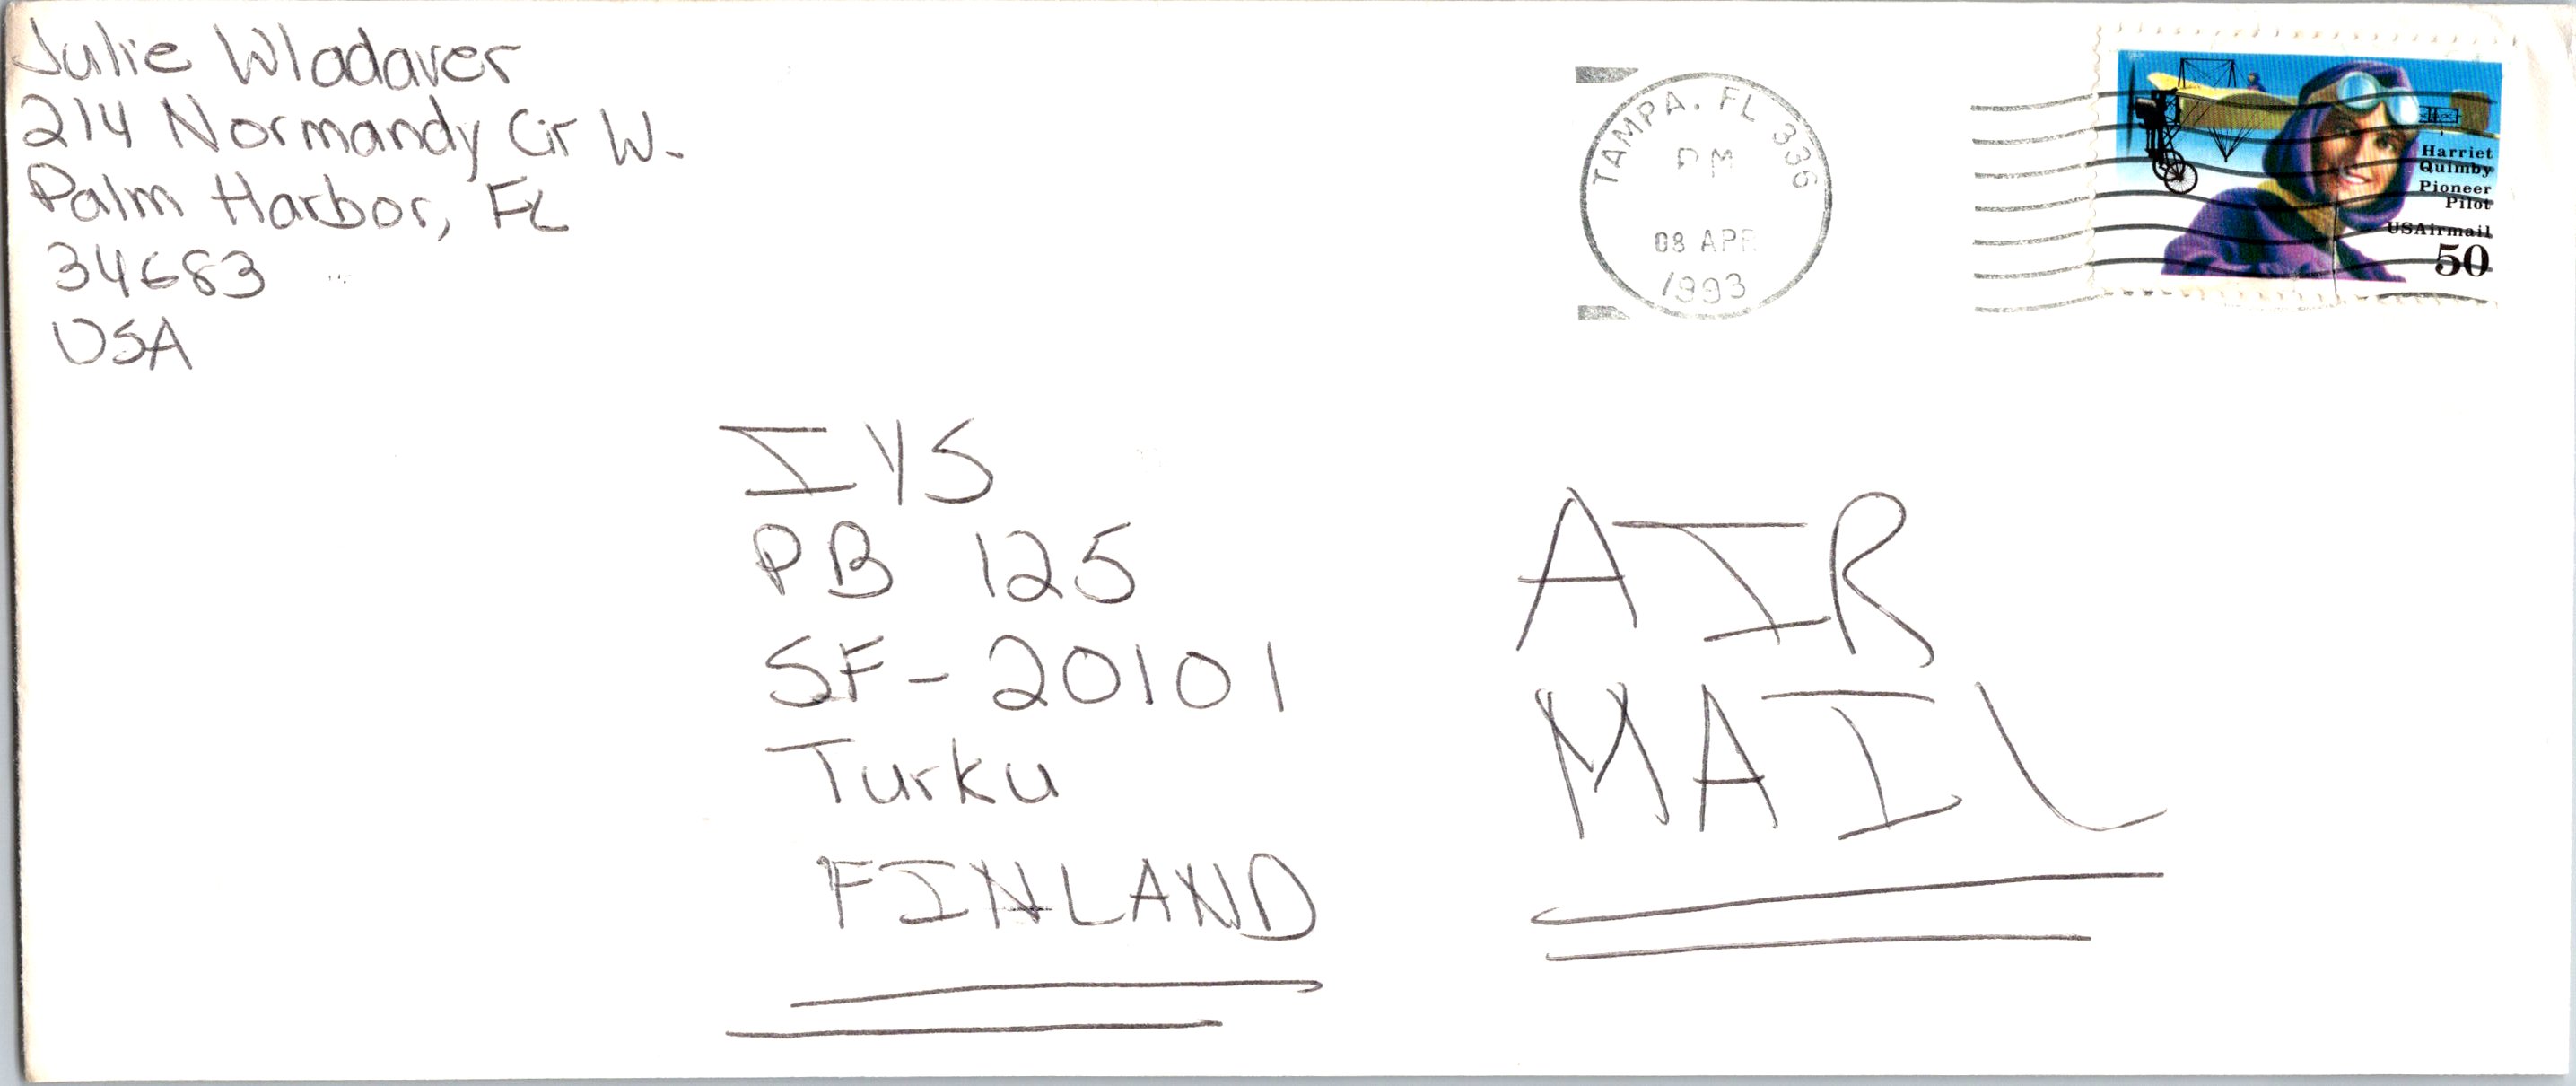 Julie Wlodaver
214 Normandy Cir W.
Palm Harbor, FL
34683
USA
TAMPA. FL 336
PM
08 APR
1993
Harriet
Quimby
Pioneer
Pilot
USAirmail
50
IYS
PB 125
SF-20101
Turku
FINLAND
AIR
MAIL